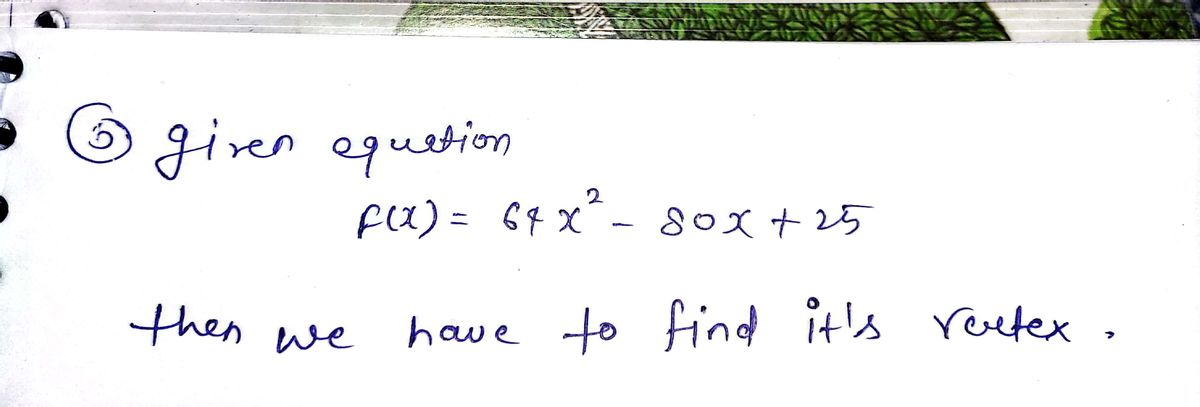 ⑤ given equation
f(x) = 64x² - 80x + 25
then we have to find it's vertex.